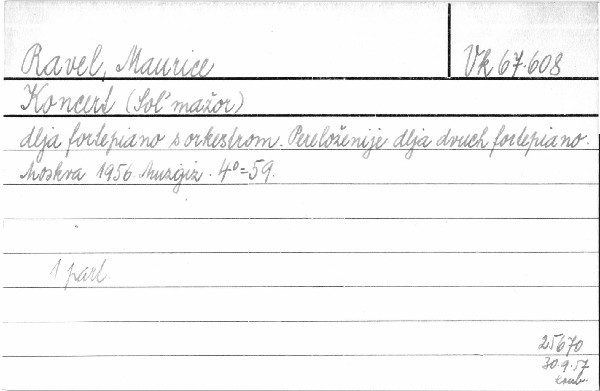 Ravel, Maurice
Vk 67.608
Koncert (Sol' mažor)
dlja fortepiano s orkestrom. Pereloženije dlja dvuch fortepiano.
Moskva 1956. Muzgiz. 4º=59.
1 part.
25670
30.9.57